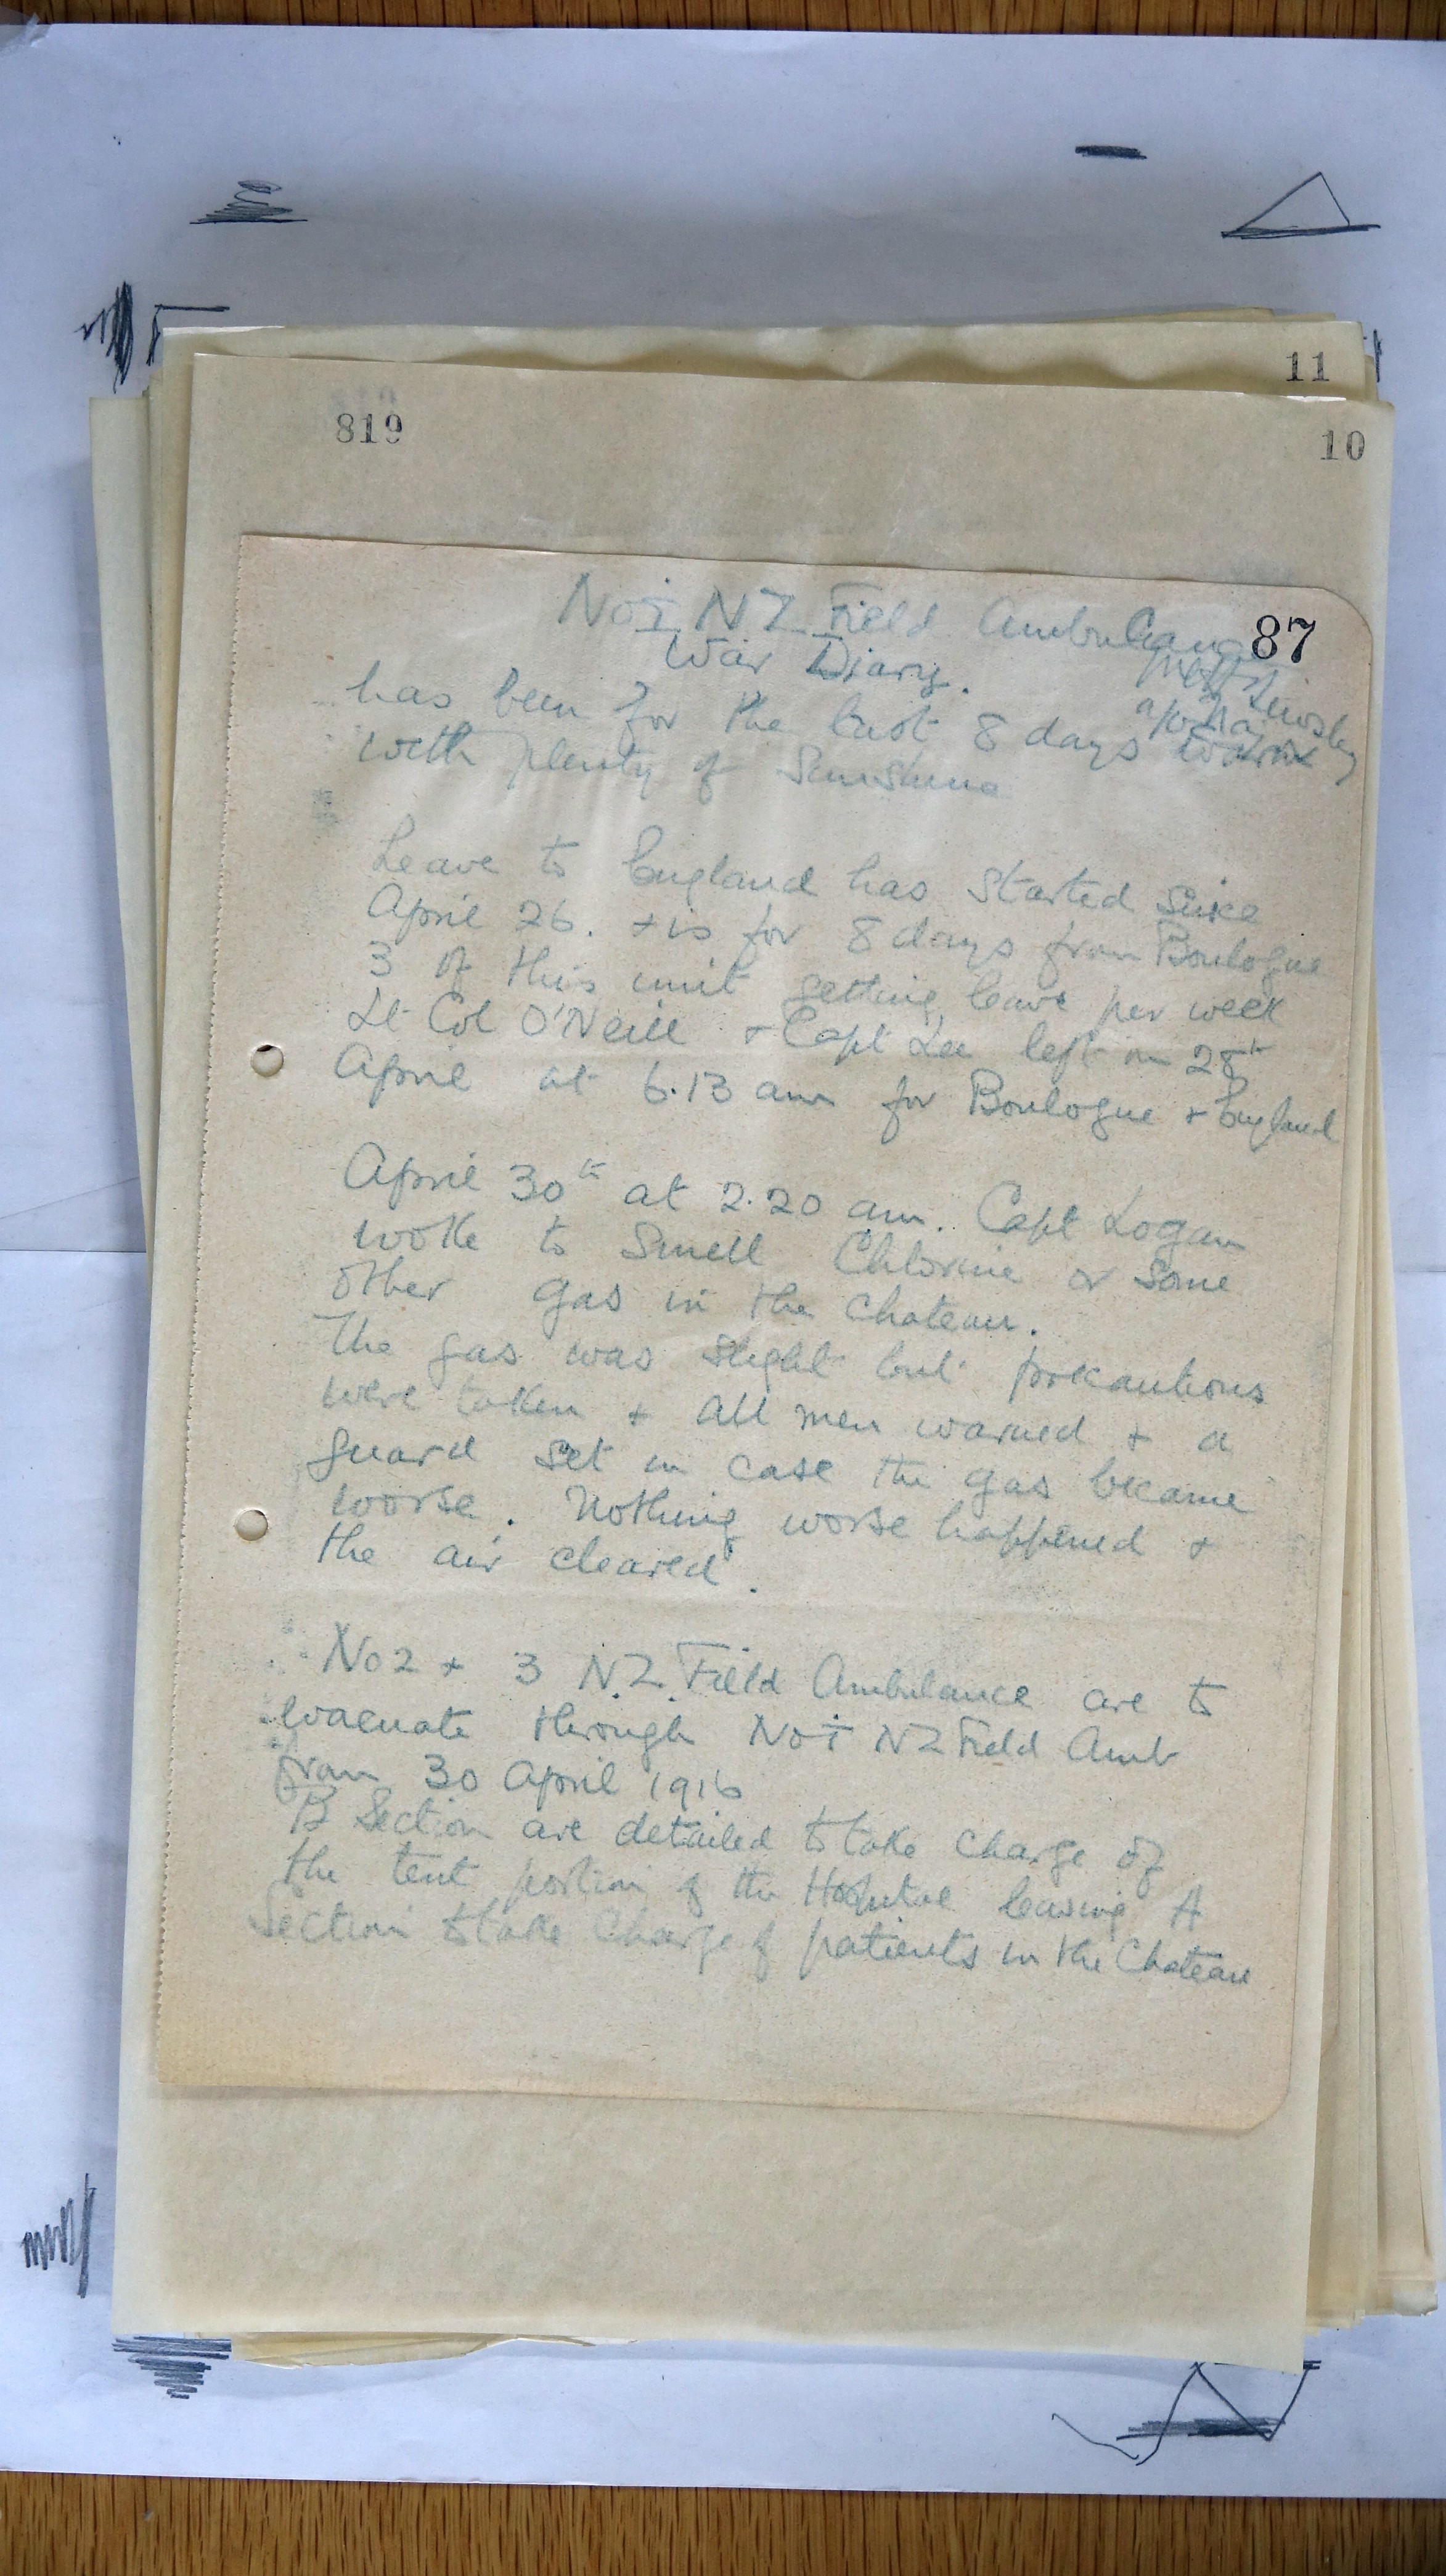 11
819
10
No 1 NZ Field Ambulance
87
War Diary.
has been for the last 8 days warm
with plenty of Sunshine
Leave to England has started since
April 26. + is for 8 days from Boulogne
3 of this unit getting leave per week
Lt Col O'Neill + Capt Lee left on 28th
April at 6.13 am for Boulogne + England
April 30th at 2.20 am. Capt Logan
woke to smell Chlorine or some
other gas in the Chateau.
The gas was slight but precautions
were taken + all men warned + a
guard set in case the gas became
worse. Nothing worse happened +
the air cleared.
No 2 + 3 N.Z. Field Ambulance are to
evacuate through No 1 NZ Field Amb
from 30 April 1916
B Section are detailed to take charge of
the tent portion of the Hospital leaving A
Section to take charge of patients in the Chateau